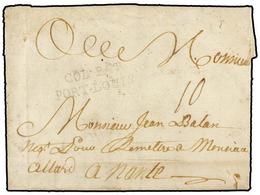 A Monsieur
COL. PAR
PORT-LOUIS
10
Monsieur Jean Balan
Neg.t Pour Remettre a Monsieur
Allard a Nante